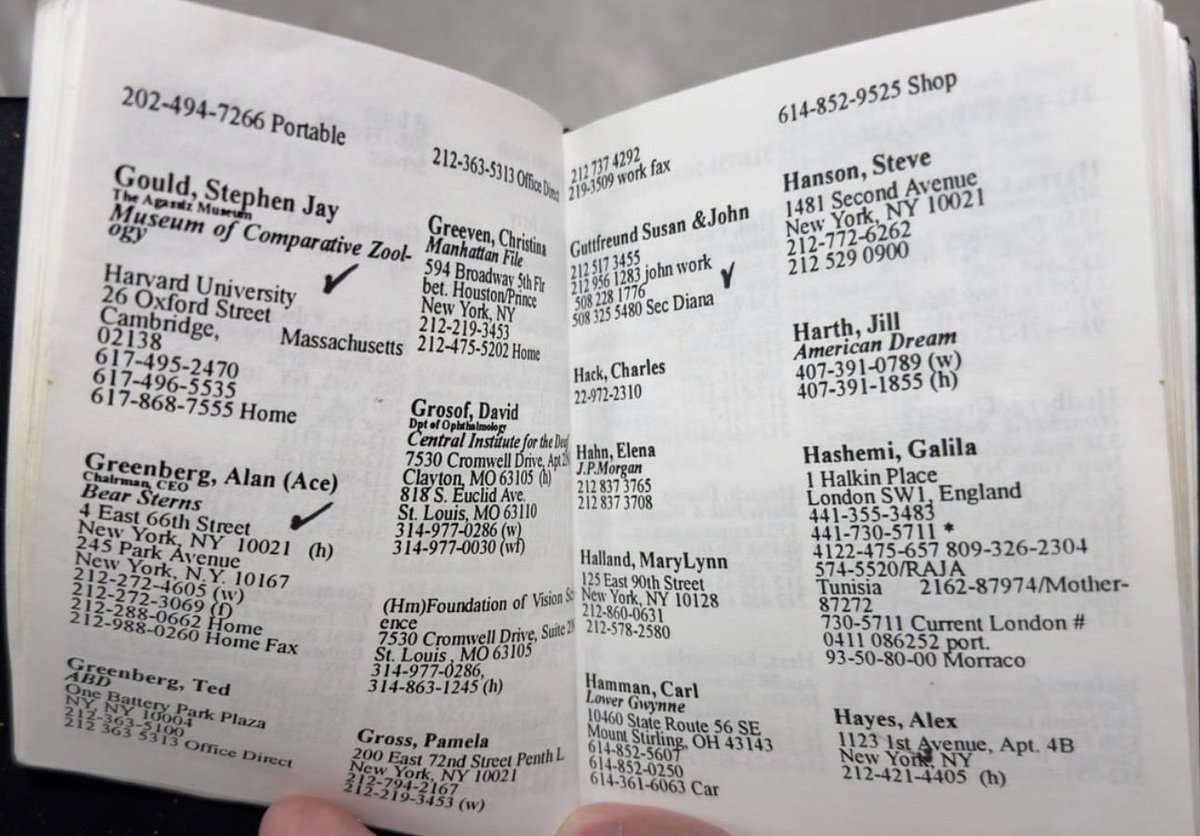 202-494-7266 Portable
Gould, Stephen Jay
The Agassiz Museum
Museum of Comparative Zool-
ogy
Harvard University
26 Oxford Street
Cambridge, Massachusetts
02138
617-495-2470
617-496-5535
617-868-7555 Home
Greenberg, Alan (Ace)
Chairman, CEO
Bear Sterns
4 East 66th Street
New York, NY 10021 (h)
245 Park Avenue
New York, N.Y. 10167
212-272-4605 (w)
212-272-3069 (f)
212-288-0662 Home
212-988-0260 Home Fax
Greenberg, Ted
ABD
One Battery Park Plaza
NY, NY 10004
212-363-5100
212 363 5313 Office Direct
212-363-5313 Office
Greeven, Christina
Manhattan File
594 Broadway 5th Flr
bet. Houston/Prince
New York, NY
212-219-3453
212-475-5202 Home
Grosof, David
Dpt of Ophthalmology
Central Institute for the
7530 Cromwell Drive, Apt
Clayton, MO 63105 (h)
818 S. Euclid Ave.
St. Louis, MO 63110
314-977-0286 (w)
314-977-0030 (wf)
(Hm)Foundation of Vision
ence
7530 Cromwell Drive, Suite
St. Louis , MO 63105
314-977-0286,
314-863-1245 (h)
Gross, Pamela
200 East 72nd Street Penth L
New York, NY 10021
212-794-2167
212-219-3453 (w)
212 737 4292
219-3509 work fax
Guttfreund Susan &John
212 517 3455
212 956 1283 john work
508 228 1776
508 325 5480 Sec Diana
Hack, Charles
22-972-2310
Hahn, Elena
J.P.Morgan
212 837 3765
212 837 3708
Halland, MaryLynn
125 East 90th Street
New York, NY 10128
212-860-0631
212-578-2580
Hamman, Carl
Lower Gwynne
10460 State Route 56 SE
Mount Stirling, OH 43143
614-852-5607
614-852-0250
614-361-6063 Car
614-852-9525 Shop
Hanson, Steve
1481 Second Avenue
New York, NY 10021
212-772-6262
212 529 0900
Harth, Jill
American Dream
407-391-0789 (w)
407-391-1855 (h)
Hashemi, Galila
1 Halkin Place
London SW1, England
441-355-3483
441-730-5711 *
4122-475-657 809-326-2304
574-5520/RAJA
Tunisia 2162-87974/Mother-
87272
730-5711 Current London #
0411 086252 port.
93-50-80-00 Morraco
Hayes, Alex
1123 1st Avenue, Apt. 4B
New York, NY
212-421-4405 (h)